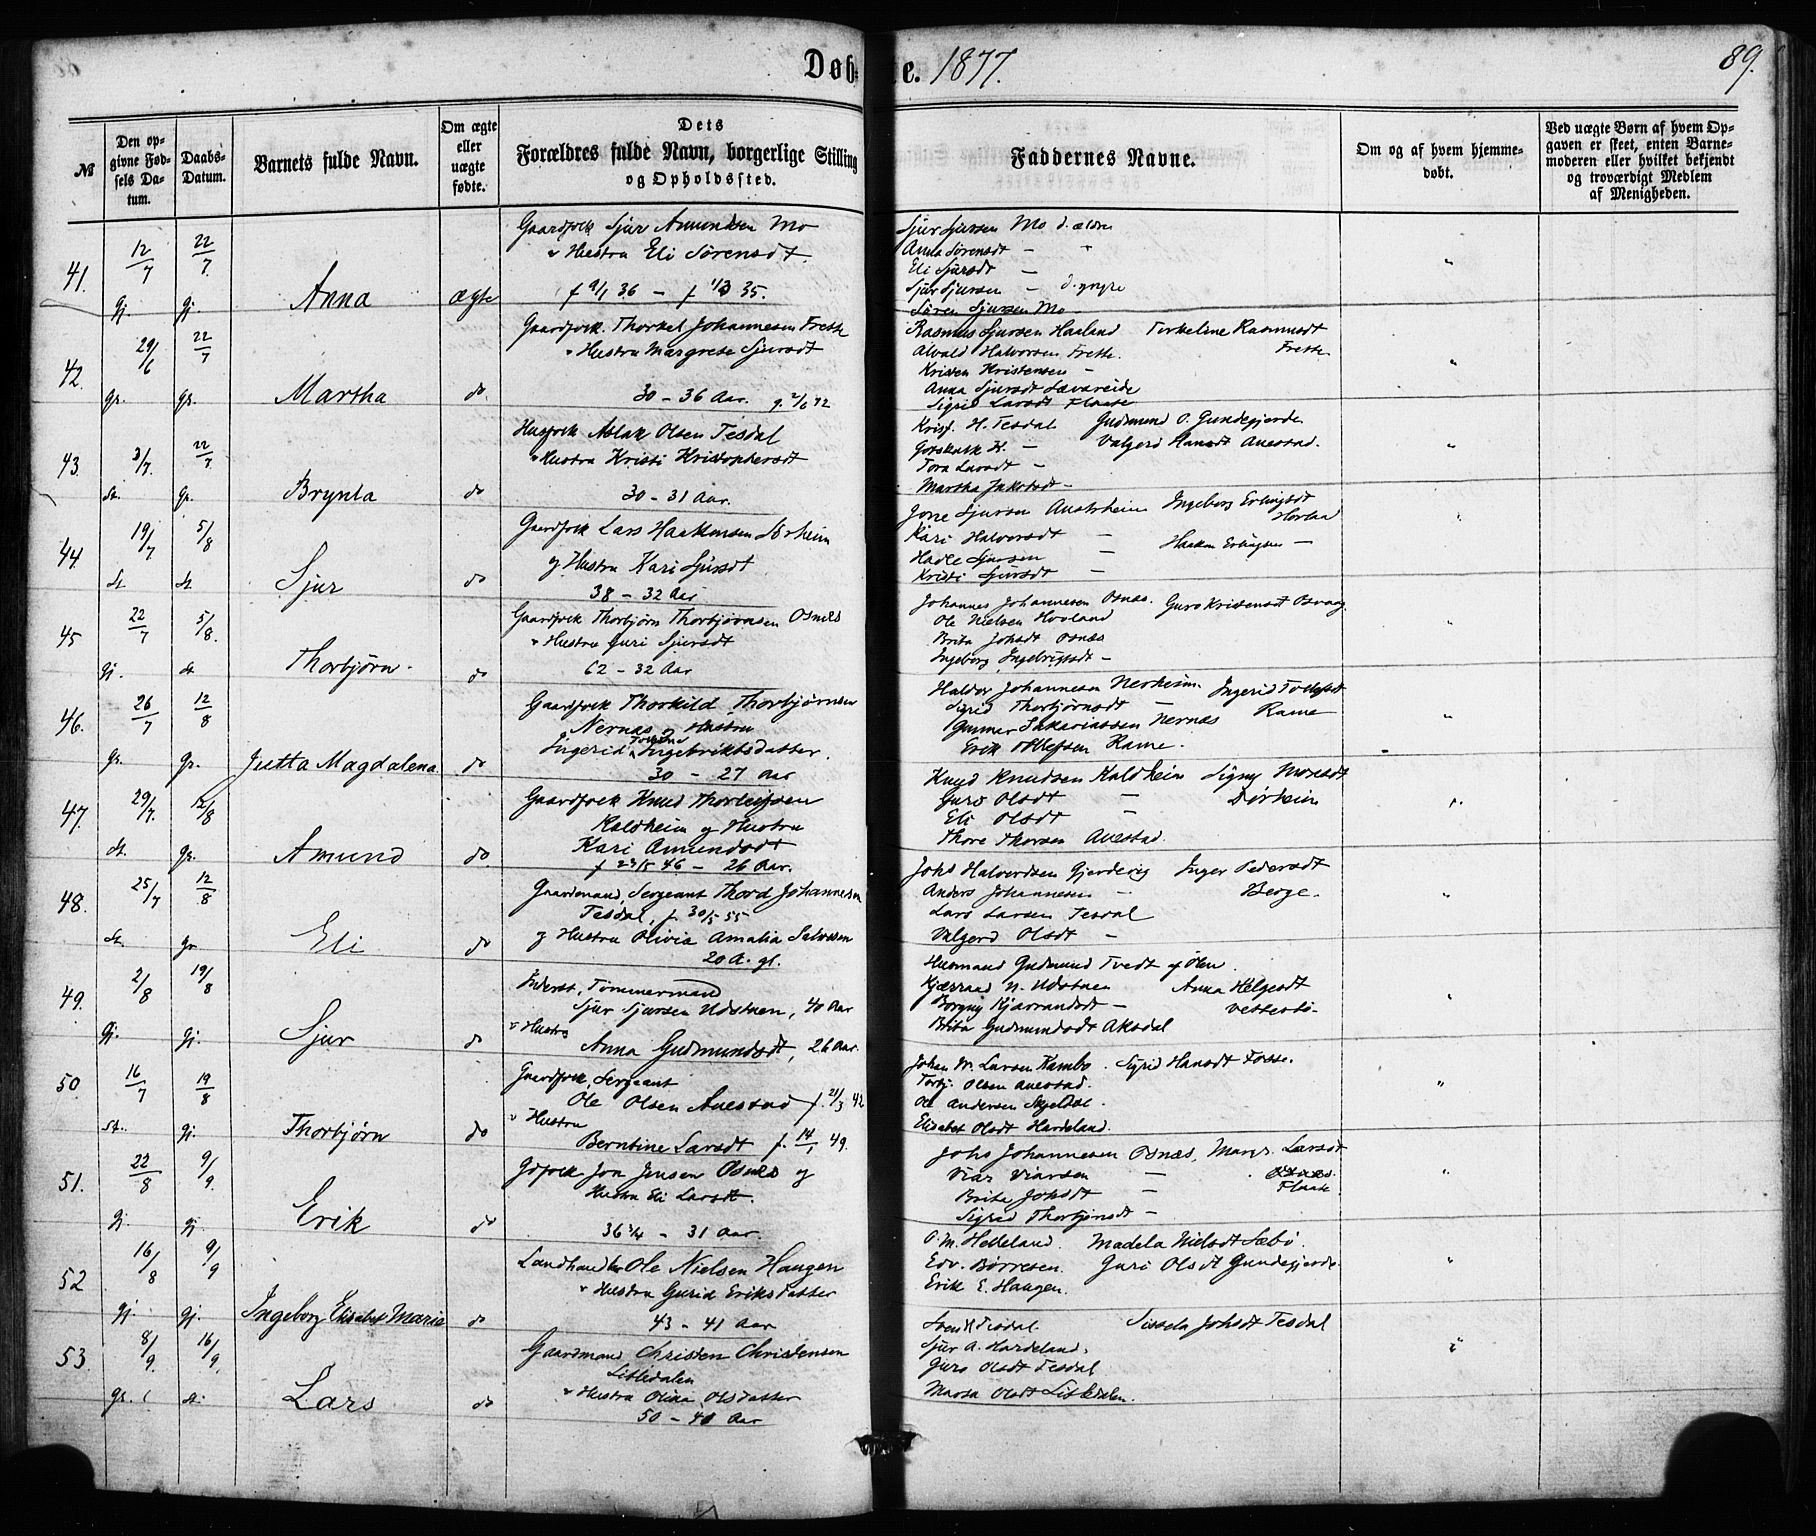 Døb-
e. 1877.
89.
№
Den op-
givne Fød-
sels Da-
tum.
Daabs-
Datum.
Barnets fulde Navn.
Om ægte
eller
uægte
fødte.
Dets
Forældres fulde Navn, borgerlige Stilling
og Opholdssted.
Faddernes Navne.
Om og af hvem hjemme-
døbt.
Ved uægte Børn af hvem Op-
gaven er skeet, enten Barne-
moderen eller hvilket bekjendt
og troværdigt Medlem
af Menigheden.
41. 12/7 22/7 Anna ægte
Gaardfolk Sjur Amundsen Mo
Hustru Eli Sørensdt.
f 9/1 36 – f 1/3 35.
Sjur Sjursen Mo d. ældre
Anna Sørensdt –
Eli Sjursdt –
Sjur Sjursen – d. yngre
Søren Sjursen Mo
42. 29/6 22/7 Martha do
Gaardfolk Thorkel Johannesen Frette
Hustru Margrete Sjursdt
30 – 36 Aar.
Rasmus Sjursen Haaland Torkeline Rasmusdt
Alvald Halvorsen Frette. Frette
Kristen Kristensen –
Anna Sjursdt Sævareide
Sigrid Larsdt Flaate
43. 3/7. 22/7 Brynla do
Husfolk Aslak Olsen Tesdal
Hustru Kristi Kristophersdt
30 – 31 Aar.
Krist. H. Tesdal Gudmund O. Gundegjerde
Gotskalk K. – Valgerd Hansdt Auestad.
Tora Larsdt –
Martha Jakobsdt –
44. 19/7 5/8 Sjur do
Gaardfolk Lars Haakonsen
og Hustru Kari Sjursdt
38 – 32 Aar
Jone Sjursen Austrheim Ingeborg Erlingsdt
Kari Halvorsdt – Haakon Erlingsen –
Hadle Sjursen –
Kristi Sjursdt –
45 22/7 5/8. Thorbjørn do
Gaardfolk Thorbjørn Thorbjørnsen Osnes
Hustru Guri Sjursdt
62 – 32 Aar
Johannes Johannesen Osnæs. Guro Kristensdt Osvaag
Ole Nielsen Hovland
Brita Johsdt Osnæs
Ingeborg Ingebrigtsdt –
46. 26/7 12/8 Jutta Magdalena do
Gaardfolk Thorkild Thorbjørnsen
Nernæs og Hustru
Ingerid Ingebrigtsdatter.
30 – 27 Aar
Haldor Johannesen Nerheim. Ingerid
Sigrid Thorbjørnsdt – Rame
Gunnar Sakariassen Nernæs
Erik Rame.
47. 29/7. 12/8 Amund do
Gaardfolk Knud Thorleifsen
Kaldheim og Hustru
Kari Amundsdt
f 29/5 46 – 26 Aar.
Knud Knudsen Kaldheim Signy Monsdt
Guro Olsdt – Dørheim
Eli Olsdt –
Thore Thorsen Auestad.
48. 25/7 12/8 Eli do
Gaardmand, Sergeant Thord Johannesen
Tesdal, f. 30/5 55
og Hustru Olivia Amalia Salvesen
20 A. gl.
Johs Halvordsen Gjerdevig Inger Pedersdt
Anders Johannesen – Berge.
Lars Larsen Tesdal
Valgerd Olsdt –
49. 2/8 19/8 Sjur do
Inderst, Tømmermand
Sjur Sjursen Udstuen, 40 Aar
Hustru
Anna Gudmundsdt, 26 Aar.
Husmand Gudmund Tvedt af Ølen
Kjærrand N. Udstuen Anna Helgesdt
Borgny Kjærrandsdt – Vestbø.
Brita Gudmundsdt Aksdal
50. 16/7 19/8 Thorbjørn do
Gaardfolk, Sergeant
Ole Olsen Auestad f. 21/3 42
Hustru
Berntine Larsdt f. 14/1 49.
Johan W. Larsen Kambo. Sigrid Hansdt Fosse.
Torbj. Olsen Auestad.
Ole Andersen Skjeldal.
Elisabet Olsdt Hardeland.
51. 22/8 9/9. Erik do
Gdfolk Jon Jensen Osnes og
Hustru Eli Larsdt.
36 3/4 – 31 Aar.
Johs Johannesen Osnæs, Margr. Larsdt
Viar Viarsen – Flaate
Brita Johsdt –
Sigrid Thorbjørnsdt –
52 16/8 9/9 Ingeborg Elisabet Maria do
Landhandler Ole Nielsen Haugen
Hustru Gurid Eriksdatter
43 – 41 Aar
O. M. Helleland. Madela Nielsdt Sæbø.
Edv. Børresen. Guri Olsdt Gundegjerde
Erik E. Haugen.
53. 8/9. 16/9. Lars do
Gaardmand Christen Christensen
Litledalen
Hustru Olina Olsdatter
50 – 40 Aar
Tesdal Sissela Johsdt Tesdal
Sjur A. Hardeland.
Guro Olsdt Tesdal
Marta Olsdt Litledalen.